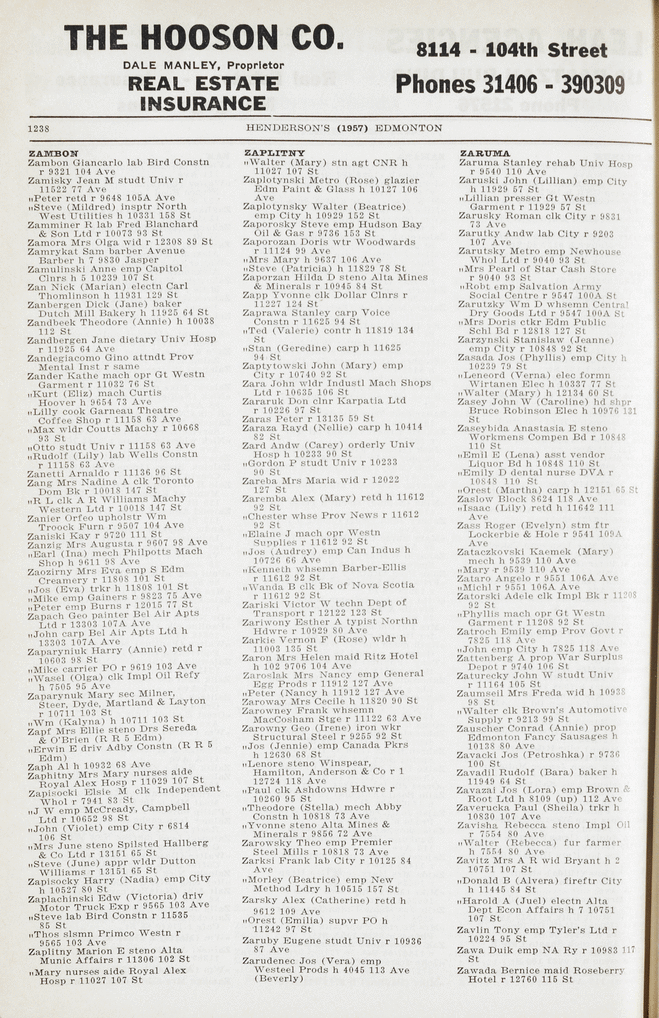 THE HOOSON CO.
DALE MANLEY, Proprietor
REAL ESTATE
INSURANCE
8114 - 104th Street
Phones 31406 - 390309
1238
HENDERSON'S (1957) EDMONTON
ZAMBON
Zambon Giancarlo lab Bird Constn
r 9321 104 Ave
Zamisky Jean M studt Univ r
11522 77 Ave
„Peter retd r 9648 105A Ave
„Steve (Mildred) insptr North
West Utilities h 10331 158 St
Zamminer H lab Fred Blanchard
& Son Ltd r 10073 93 St
Zamora Mrs Olga wid r 12308 89 St
Zamrykat Sam barber Avenue
Barber h 7 9830 Jasper
Zamulinski Anne emp Capitol
Clnrs h 5 10239 107 St
Zan Nick (Marian) electn Carl
Thomlinson h 11931 129 St
Zanbergen Dick (Jane) baker
Dutch Mill Bakery h 11925 64 St
Zandbeek Theodore (Annie) h 10038
112 St
Zandbergen Jane dietary Univ Hosp
r 11925 64 Ave
Zandegiacomo Gino attndt Prov
Mental Inst r same
Zander Kathe mach opr Gt Westn
Garment r 11032 76 St
„Kurt (Eliz) mach Curtis
Hoover h 9654 73 Ave
„Lilly cook Garneau Theatre
Coffee Shop r 11158 63 Ave
„Max wldr Coutts Machy r 10668
93 St
„Otto studt Univ r 11158 63 Ave
„Rudolf (Lily) lab Wells Constn
r 11158 63 Ave
Zanetti Arnaldo r 11136 96 St
Zang Mrs Nadine A clk Toronto
Dom Bk r 10018 147 St
„R L clk A R Williams Machy
Western Ltd r 10018 147 St
Zanier Orfeo upholstr Wm
Troock Furn r 9507 104 Ave
Zaniski Kay r 9720 111 St
Zanzig Mrs Augusta r 9607 98 Ave
„Earl (Ina) mech Philpotts Mach
Shop h 9611 98 Ave
Zaozirny Mrs Eva emp S Edm
Creamery r 11808 101 St
„Jos (Eva) trkr h 11808 101 St
„Mike emp Gainers r 9823 75 Ave
„Peter emp Burns r 12015 77 St
Zapach Geo painter Bel Air Apts
Ltd r 13303 107A Ave
„John carp Bel Air Apts Ltd h
13303 107A Ave
Zaparyniuk Harry (Annie) retd r
10603 98 St
„Mike carrier PO r 9619 103 Ave
„Wasel (Olga) clk Impl Oil Refy
h 7505 95 Ave
Zaparynuk Mary sec Milner,
Steer, Dyde, Martland & Layton
r 10711 103 St
„Wm (Kalyna) h 10711 103 St
Zapf Mrs Ellie steno Drs Sereda
& O'Brien (R R 5 Edm)
„Erwin E driv Adby Constn (R R 5
Edm)
Zaph Al h 10932 68 Ave
Zaphitny Mrs Mary nurses aide
Royal Alex Hosp r 11029 107 St
Zapisocki Elsie M clk Independent
Whol r 7941 83 St
„J W emp McCready, Campbell
Ltd r 10652 98 St
„John (Violet) emp City r 6814
106 St
„Mrs June steno Spilsted Hallberg
& Co Ltd r 13151 65 St
„Steve (June) appr wldr Dutton
Williams r 13151 65 St
Zapisocky Harry (Nadia) emp City
h 10527 80 St
Zaplachinski Edw (Victoria) driv
Motor Truck Exp r 9565 103 Ave
„Steve lab Bird Constn r 11535
85 St
„Thos slsmn Primco Westn r
9565 103 Ave
Zaplitny Marion E steno Alta
Munic Affairs r 11306 102 St
„Mary nurses aide Royal Alex
Hosp r 11027 107 St
ZAPLITNY
„Walter (Mary) stn agt CNR h
11027 107 St
Zaplotynski Metro (Rose) glazier
Edm Paint & Glass h 10127 106
Ave
Zaplotynsky Walter (Beatrice)
emp City h 10929 152 St
Zaporosky Steve emp Hudson Bay
Oil & Gas r 9736 153 St
Zaporozan Doris wtr Woodwards
r 11124 99 Ave
„Mrs Mary h 9637 106 Ave
„Steve (Patricia) h 11829 78 St
Zaporzan Hilda D steno Alta Mines
& Minerals r 10945 84 St
Zapp Yvonne clk Dollar Clnrs r
11227 124 St
Zaprawa Stanley carp Voice
Constn r 11625 94 St
„Ted (Valerie) contr h 11819 134
St
„Stan (Geredine) carp h 11625
94 St
Zaptytowski John (Mary) emp
City r 10740 92 St
Zara John wldr Industl Mach Shops
Ltd r 10635 106 St
Zararuk Don clnr Karpatia Ltd
r 10226 97 St
Zaras Peter r 13135 59 St
Zaraza Rayd (Nellie) carp h 10414
82 St
Zard Andw (Carey) orderly Univ
Hosp h 10233 90 St
„Gordon P studt Univ r 10233
90 St
Zareba Mrs Maria wid r 12022
127 St
Zaremba Alex (Mary) retd h 11612
92 St
„Chester whse Prov News r 11612
92 St
„Elaine J mach opr Westn
Supplies r 11612 92 St
„Jos (Audrey) emp Can Indus h
10726 66 Ave
„Kenneth whsemn Barber-Ellis
r 11612 92 St
„Wanda B clk Bk of Nova Scotia
r 11612 92 St
Zariski Victor W techn Dept of
Transport r 12122 123 St
Zariwony Esther A typist Northn
Hdwre r 10929 80 Ave
Zarkie Vernie F (Rose) wldr h
11003 135 St
Zaron Mrs Helen maid Ritz Hotel
h 102 9706 104 Ave
Zaroslak Mrs Nancy emp General
Egg Prods r 11912 127 Ave
„Peter (Nancy h 11912 127 Ave
Zaroway Mrs Cecile h 11820 90 St
Zarowney Frank whsemn
MacCosham Stge r 11122 63 Ave
Zarowny Geo (Irene) iron wkr
Structural Steel r 9255 92 St
„Jos (Jennie) emp Canada Pkrs
h 12630 68 St
„Lenore steno Winspear,
Hamilton, Anderson & Co r 1
12724 118 Ave
„Paul clk Ashdowns Hdwre r
10260 95 St
„Theodore (Stella) mech Abby
Constn h 10818 73 Ave
„Yvonne steno Alta Mines &
Minerals r 9856 72 Ave
Zarowsky Theo emp Premier
Steel Mills r 10818 73 Ave
Zarksi Frank lab City r 10125 84
Ave
„Morley (Beatrice) emp New
Method Ldry h 10515 157 St
Zarsky Alex (Catherine) retd h
9612 109 Ave
„Orest (Emilia) supvr PO h
11242 97 St
Zaruby Eugene studt Univ r 10936
87 Ave
Zarudenec Jos (Vera) emp
Westeel Prods h 4045 113 Ave
(Beverly)
ZARUMA
Zaruma Stanley rehab Univ Hosp
r 9540 110 Ave
Zaruski John (Lillian) emp City
h 11929 57 St
„Lillian presser Gt Westn
Garment r 11929 57 St
Zarusky Roman clk City r 9831
73 Ave
Zarutky Andw lab City r 9203
107 Ave
Zarutsky Metro emp Newhouse
Whol Ltd r 9040 93 St
„Mrs Pearl of Star Cash Store
r 9040 93 St
„Robt emp Salvation Army
Social Centre r 9547 100A St
Zarutzky Wm D whsemn Central
Dry Goods Ltd r 9547 100A St
„Mrs Doris ctkr Edm Public
Schl Bd r 12818 127 St
Zarzynski Stanislaw (Jeanne)
emp City r 10848 92 St
Zasada Jos (Phyllis) emp City h
10239 79 St
„Leneord (Verna) elec formn
Wirtanen Elec h 10337 77 St
„Walter (Mary) h 12134 60 St
Zasey John W (Caroline) hd shpr
Bruce Robinson Elec h 10976 131
St
Zaseybida Anastasia E steno
Workmens Compen Bd r 10848
110 St
„Emil E (Lena) asst vendor
Liquor Bd h 10848 110 St
„Emily D dental nurse DVA r
10848 110 St
„Orest (Martha) carp h 12151 65 St
Zaslow Block 8624 118 Ave
„Isaac (Lily) retd h 11642 111
Ave
Zass Roger (Evelyn) stm ftr
Lockerbie & Hole r 9541 109A
Ave
Zataczkovski Kaemek (Mary)
mech h 9539 110 Ave
„Mary r 9539 110 Ave
Zataro Angelo r 9551 106A Ave
„Michl r 9551 106A Ave
Zatorski Adele clk Impl Bk r 11208
92 St
„Phyllis mach opr Gt Westn
Garment r 11208 92 St
Zatroch Emily emp Prov Govt r
7825 118 Ave
„John emp City h 7825 118 Ave
Zattenberg A prop War Surplus
Depot r 9740 106 St
Zaturecky John W studt Univ
r 11164 105 St
Zaumseil Mrs Freda wid h 10938
98 St
„Walter clk Brown's Automotive
Supply r 9213 99 St
Zauscher Conrad (Annie) prop
Edmonton Fancy Sausages h
10138 80 Ave
Zavacki Jos (Petroshka) r 9736
100 St
Zavadil Rudolf (Bara) baker h
11949 64 St
Zavazai Jos (Lora) emp Brown &
Root Ltd h 8109 (up) 112 Ave
Zaverucka Paul (Sheila) trkr h
10830 107 Ave
Zavisha Rebecca steno Impl Oil
r 7554 80 Ave
„Walter (Rebecca) fur farmer
h 7554 80 Ave
Zavitz Mrs A R wid Bryant h 2
10751 107 St
„Donald B (Alvera) fireftr City
h 11445 84 St
„Harold A (Juel) electn Alta
Dept Econ Affairs h 7 10751
107 St
Zavlin Tony emp Tyler's Ltd r
10224 95 St
Zawa Duik emp NA Ry r 10983 117
St
Zawada Bernice maid Roseberry
Hotel r 12760 115 St